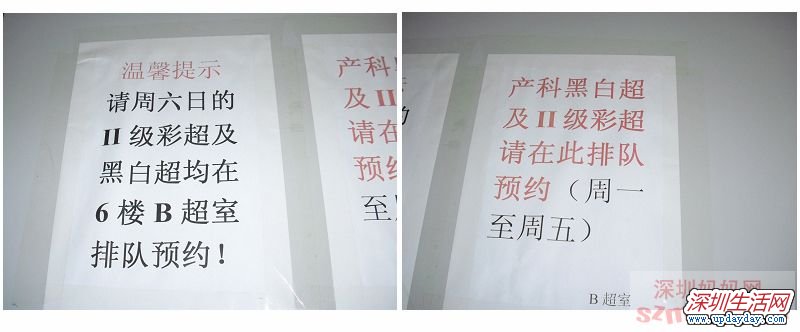 温馨提示
请周六日的
II级彩超及
黑白超均在
6楼B超室
排队预约！
产科黑
及II
请在
预约
至
产科黑白超
及II级彩超
请在此排队
预约（周一
至周五）
B超室
深圳妈妈网
深圳生活网
www.updayday.com